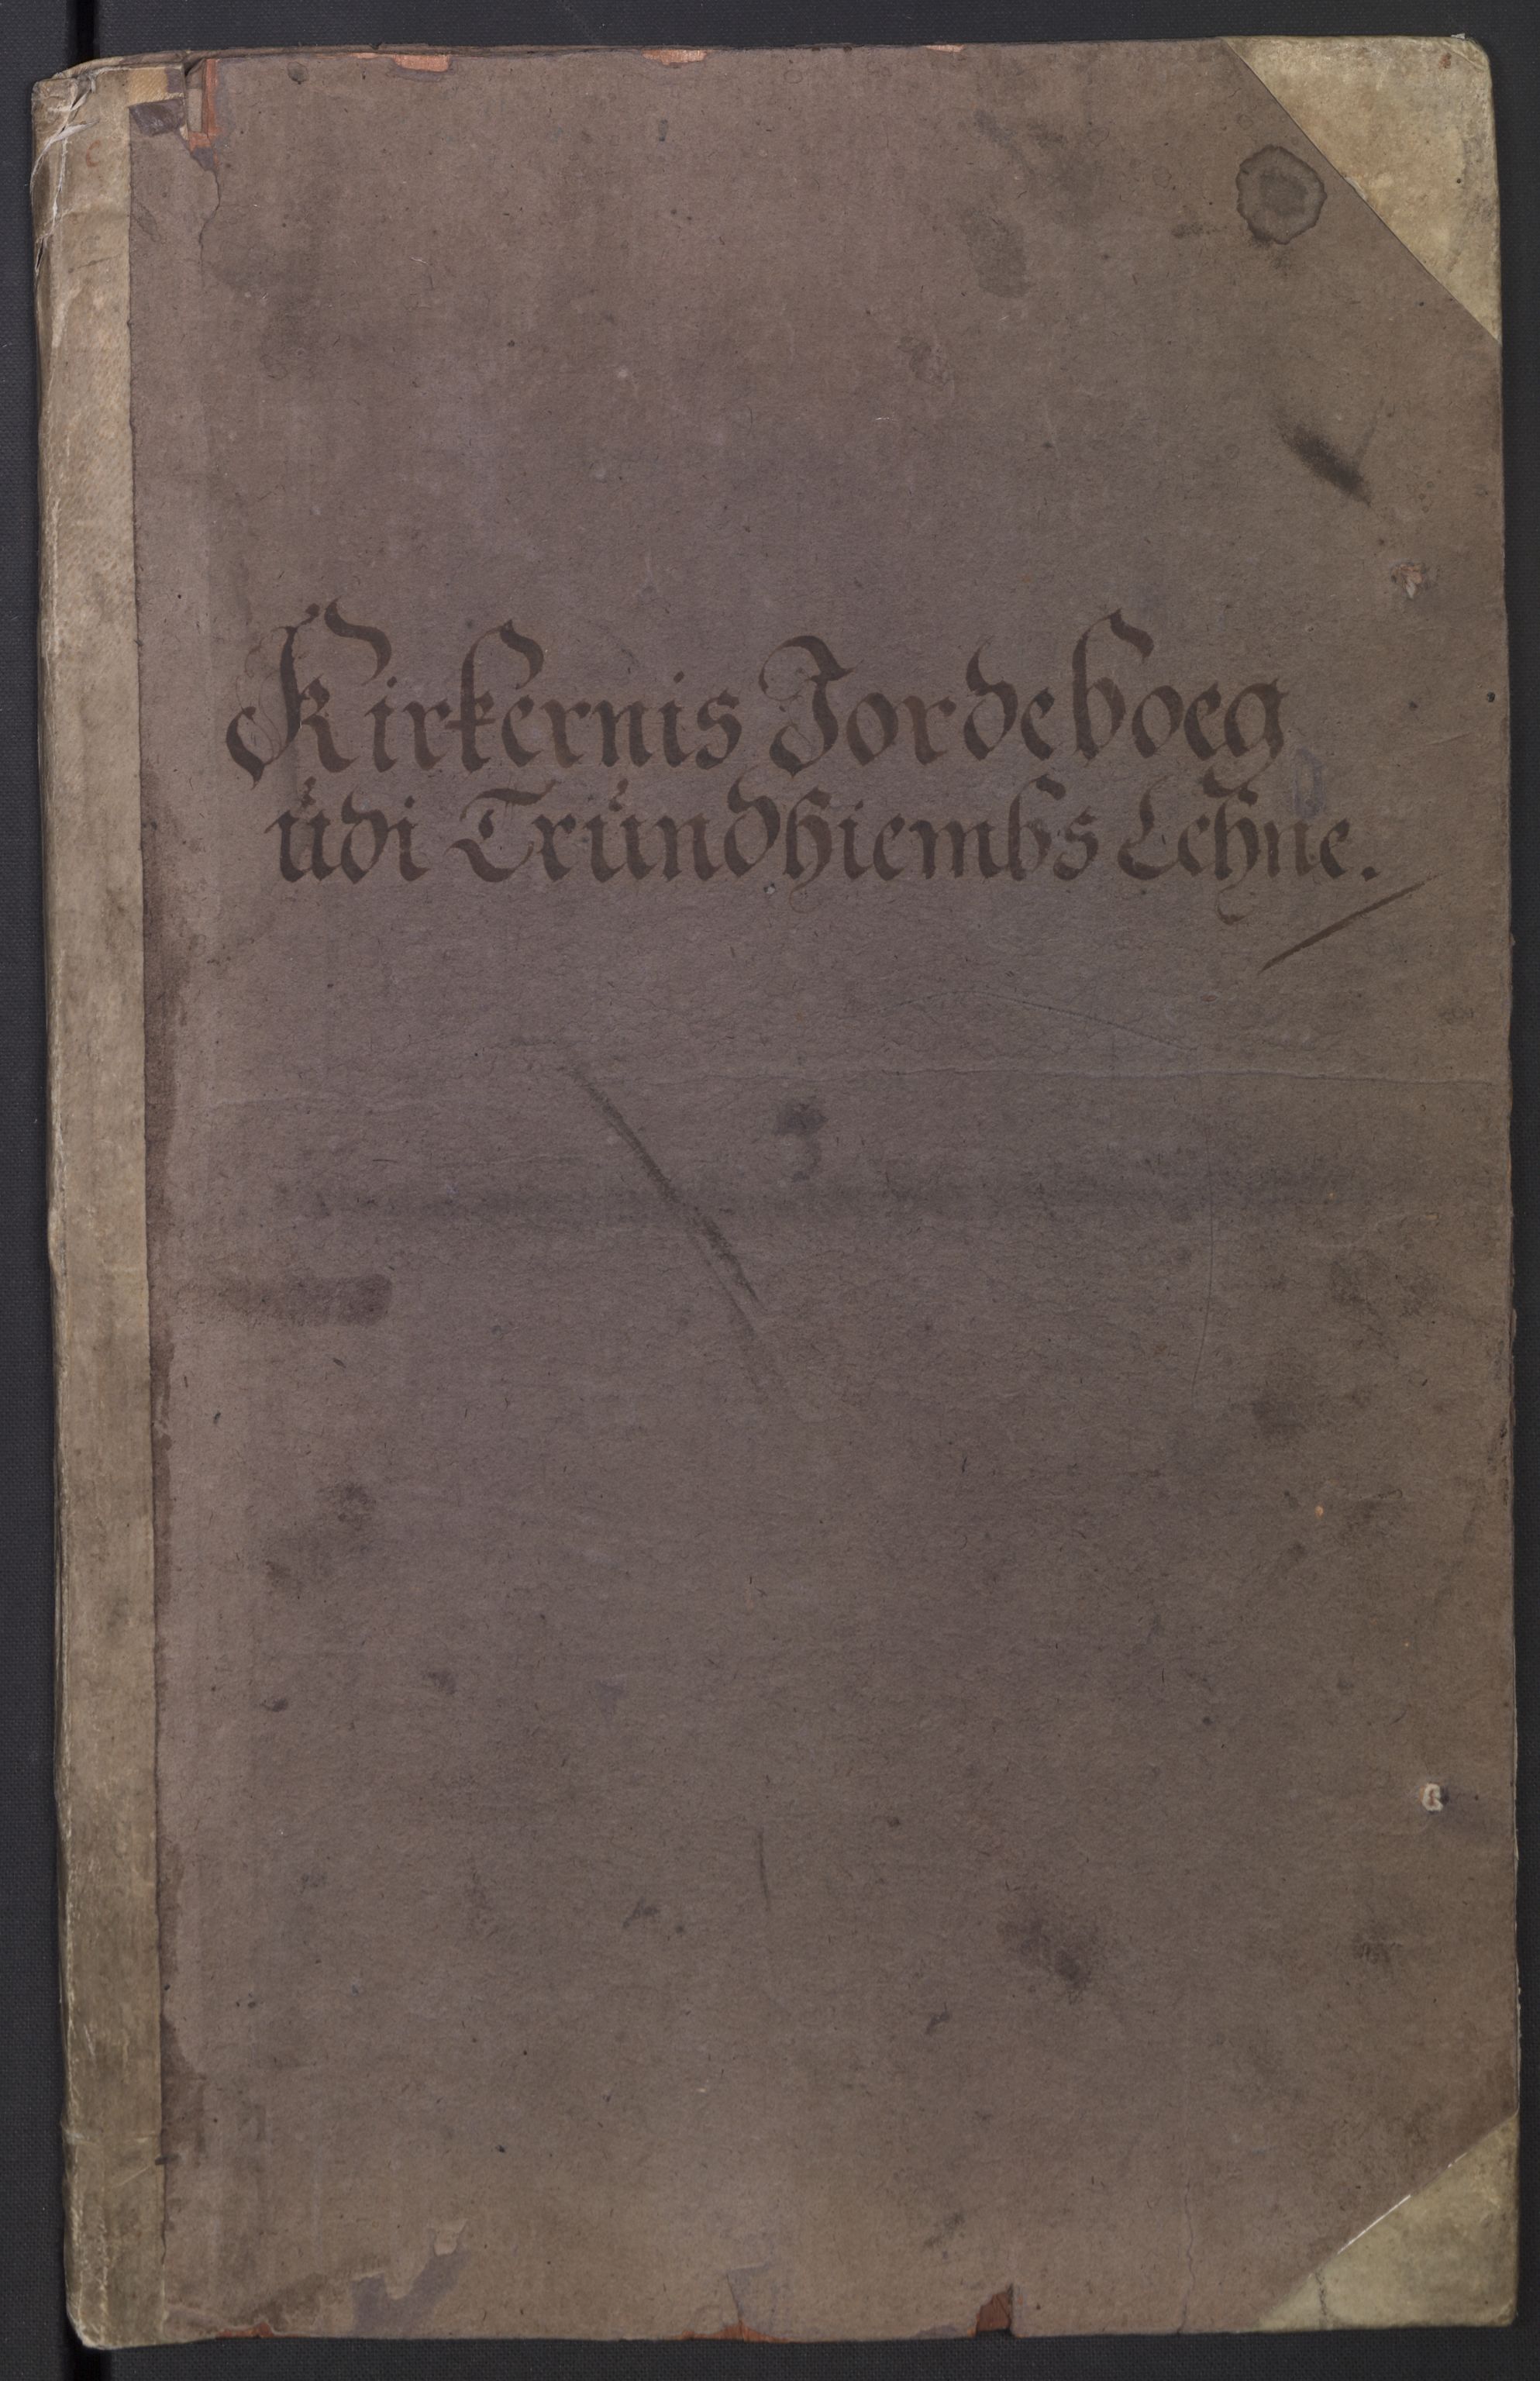 Kirkernis Jordeboeg
udi Trundhiembs Lehne.